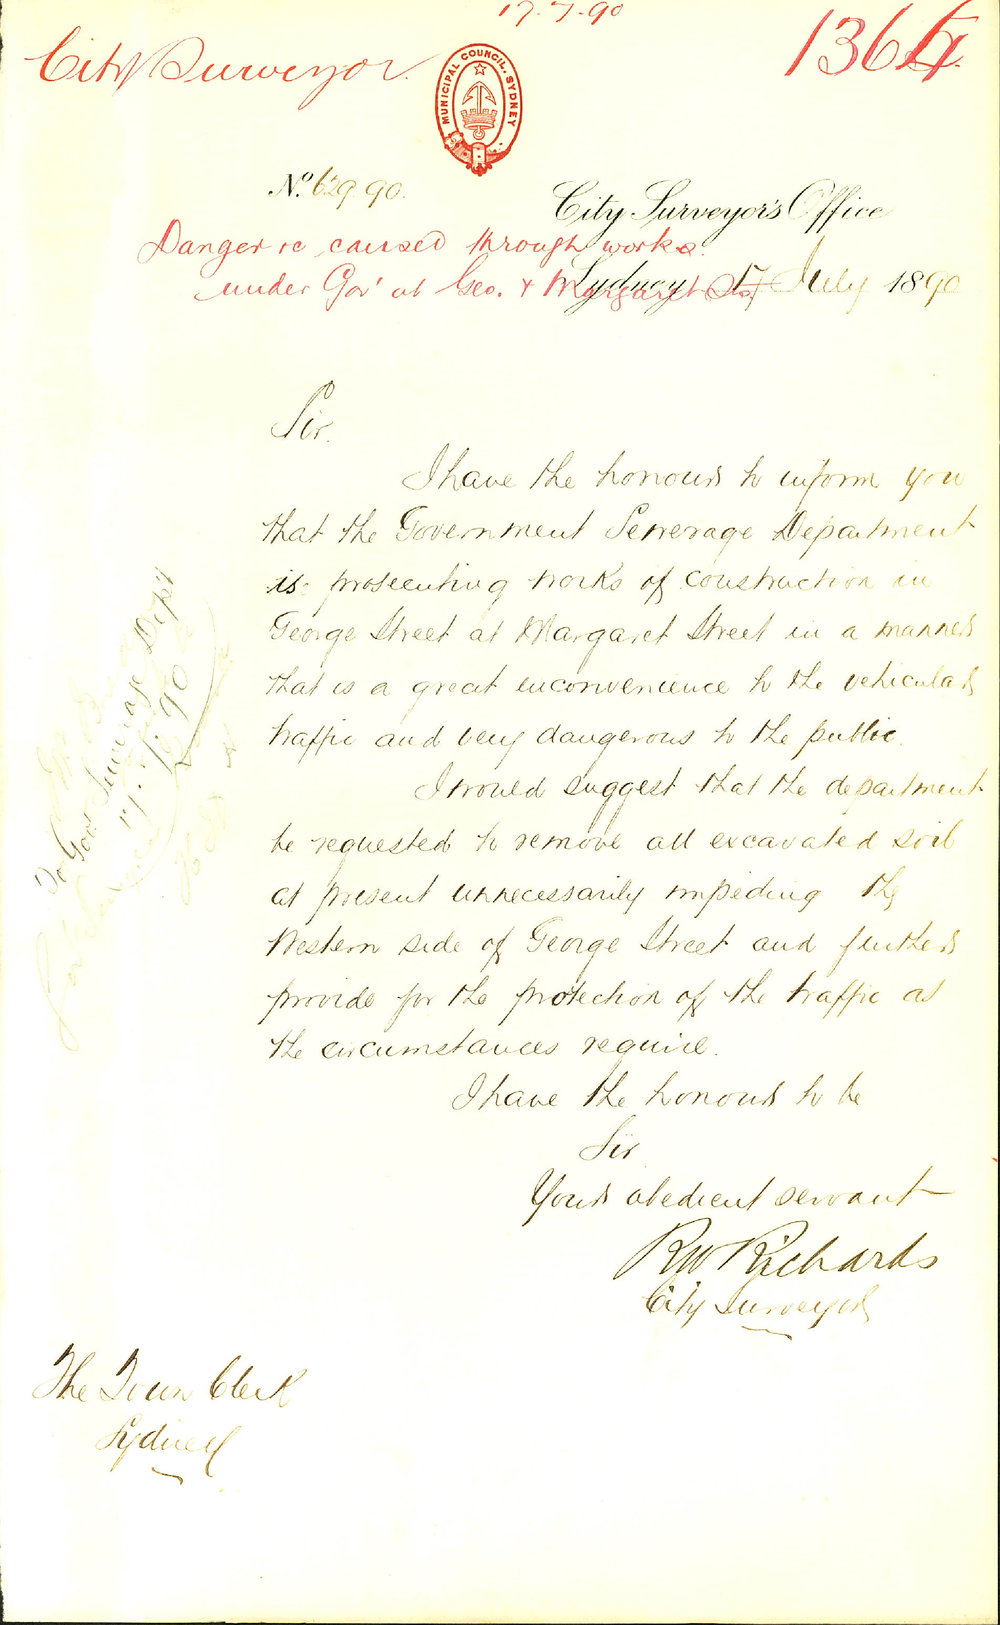 17.7.90
City Surveyor.
1364
MUNICIPAL COUNCIL. SYDNEY
No. 629 90.
City Surveyor's Office
Danger &c caused through works
under Gov' at Geo. & Margaret Sts
Sydney 17 July 1890
Sir.
I have the honour to inform you
that the Government Sewerage Department
is prosecuting works of construction in
George Street at Margaret Street in a manner
that is a great inconvenience to the vehicular
traffic and very dangerous to the public.
I would suggest that the department
be requested to remove all excavated soil
at present unnecessarily impeding the
Western side of George Street and further
provide for the protection of the traffic as
the circumstances require.
I have the honour to be
Sir
Your obedient servant
RW Richards
City Surveyor
The Town Clerk
Sydney
To Govt Sewerage Dept
17.7.90